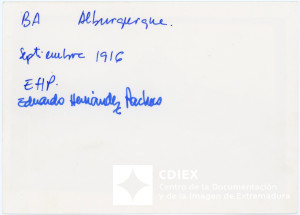 BA Alburquerque.
Septiembre 1916
EHP.
Eduardo Hernández Pacheco
CDIEX
Centro de la Documentación
y de la Imagen de Extremadura